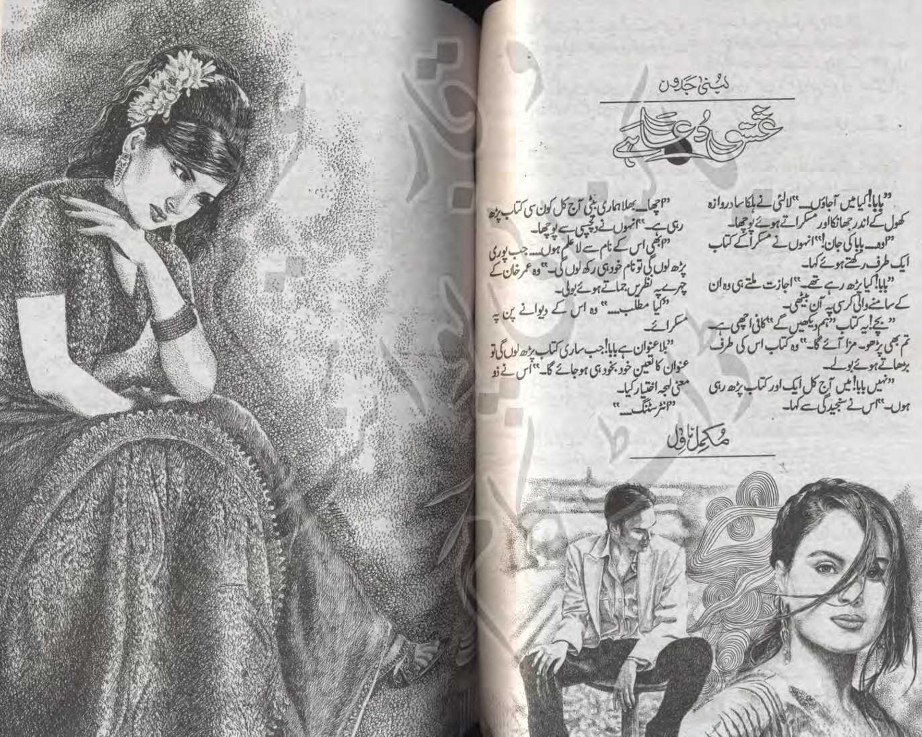 لبنیٰ جدون
عشق دعا ہے
”بابا! کیا میں آجاؤں....“ لالٹی نے ہلکا سا دروازہ
کھول کے اندر جھانکا اور مسکراتے ہوئے پوچھا۔
”اوہ.... بابا کی جان!“ انہوں نے مسکرا کے کتاب
ایک طرف رکھتے ہوئے کہا۔
”بابا! کیا پڑھ رہے تھے۔“ اجازت ملتے ہی وہ ان
کے سامنے والی کرسی پہ آن بیٹھی۔
”بچے! یہ کتاب ”ہم دیکھیں گے“ کافی اچھی ہے۔
تم بھی پڑھو۔ مزا آئے گا۔“ وہ کتاب اس کی طرف
بڑھاتے ہوئے بولے۔
”نہیں بابا! میں آج کل ایک اور کتاب پڑھ رہی
ہوں۔“ اس نے سنجیدگی سے کہا۔
”اچھا.... بھلا ہماری بیٹی آج کل کون سی کتاب پڑھ
رہی ہے۔“ انہوں نے دلچسپی سے پوچھا۔
”ابھی اس کے نام سے لاعلم ہوں.... جب پوری
پڑھ لوں گی تو نام خود ہی رکھ لوں گی۔“ وہ عمر خان کے
چہرے پہ نظریں جماتے ہوئے بولی۔
”کیا مطلب....“ وہ اس کے دیوانے پن پہ
مسکرائے۔
”بلا عنوان ہے بابا! جب ساری کتاب پڑھ لوں گی تو
عنوان کا تعین خود بخود ہی ہو جائے گا۔“ اس نے ذو
معنی لہجہ اختیار کیا۔
”انٹرسٹنگ....“
مکمل ناول